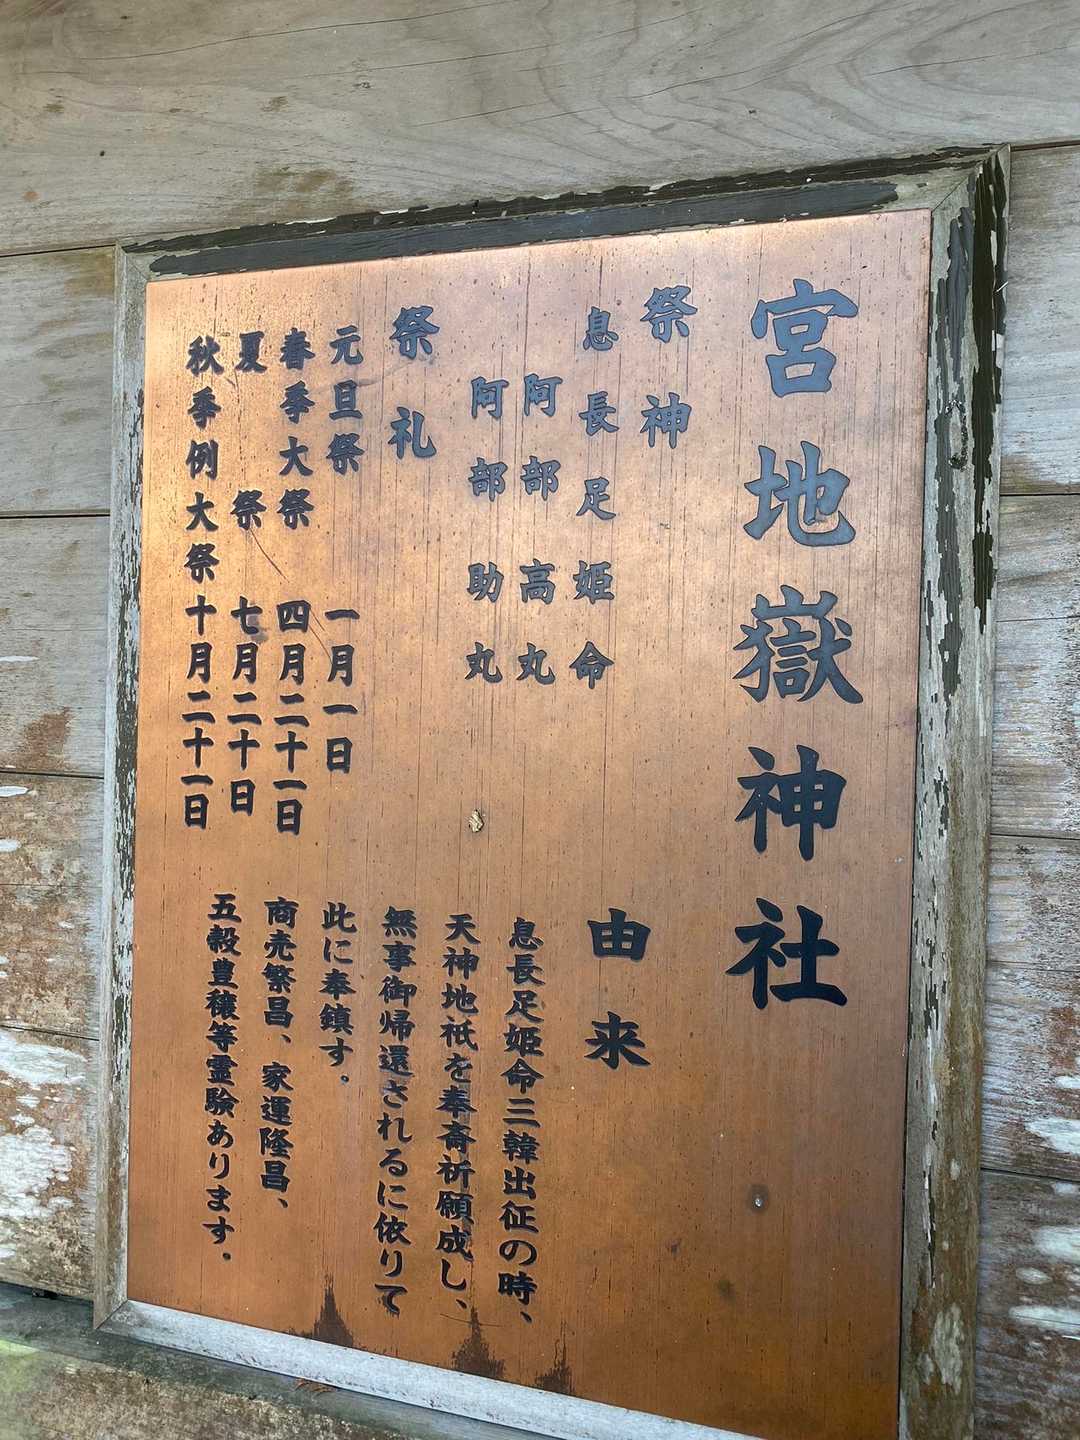 宮地嶽神社
祭神
息長足姫命
阿部高丸
阿部助丸
祭礼
元旦祭 一月一日
春季大祭 四月二十一日
夏祭 七月二十日
秋季例大祭 十月二十一日
由来
息長足姫命三韓出征の時、
天神地祇を奉斎祈願成し、
無事御帰還されるに依りて
此に奉鎮す.
商売繁昌、家運隆昌、
五穀豊穣等霊験あります.